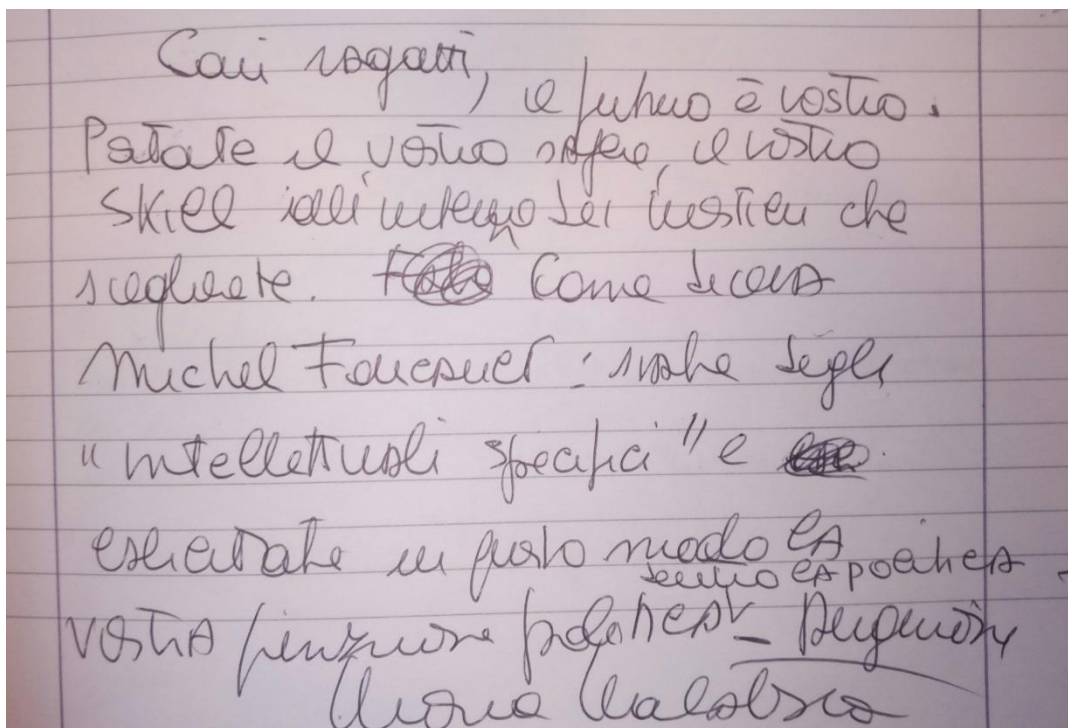 Cari ragazzi, il futuro è vostro.
Portate il vostro sapere, il vostro
skill all'interno dei mestieri che
sceglierete. Come diceva
Michel Foucault: siate degli
"intellettuali specifici" e
esercitate in questo modo la
vostra funzione